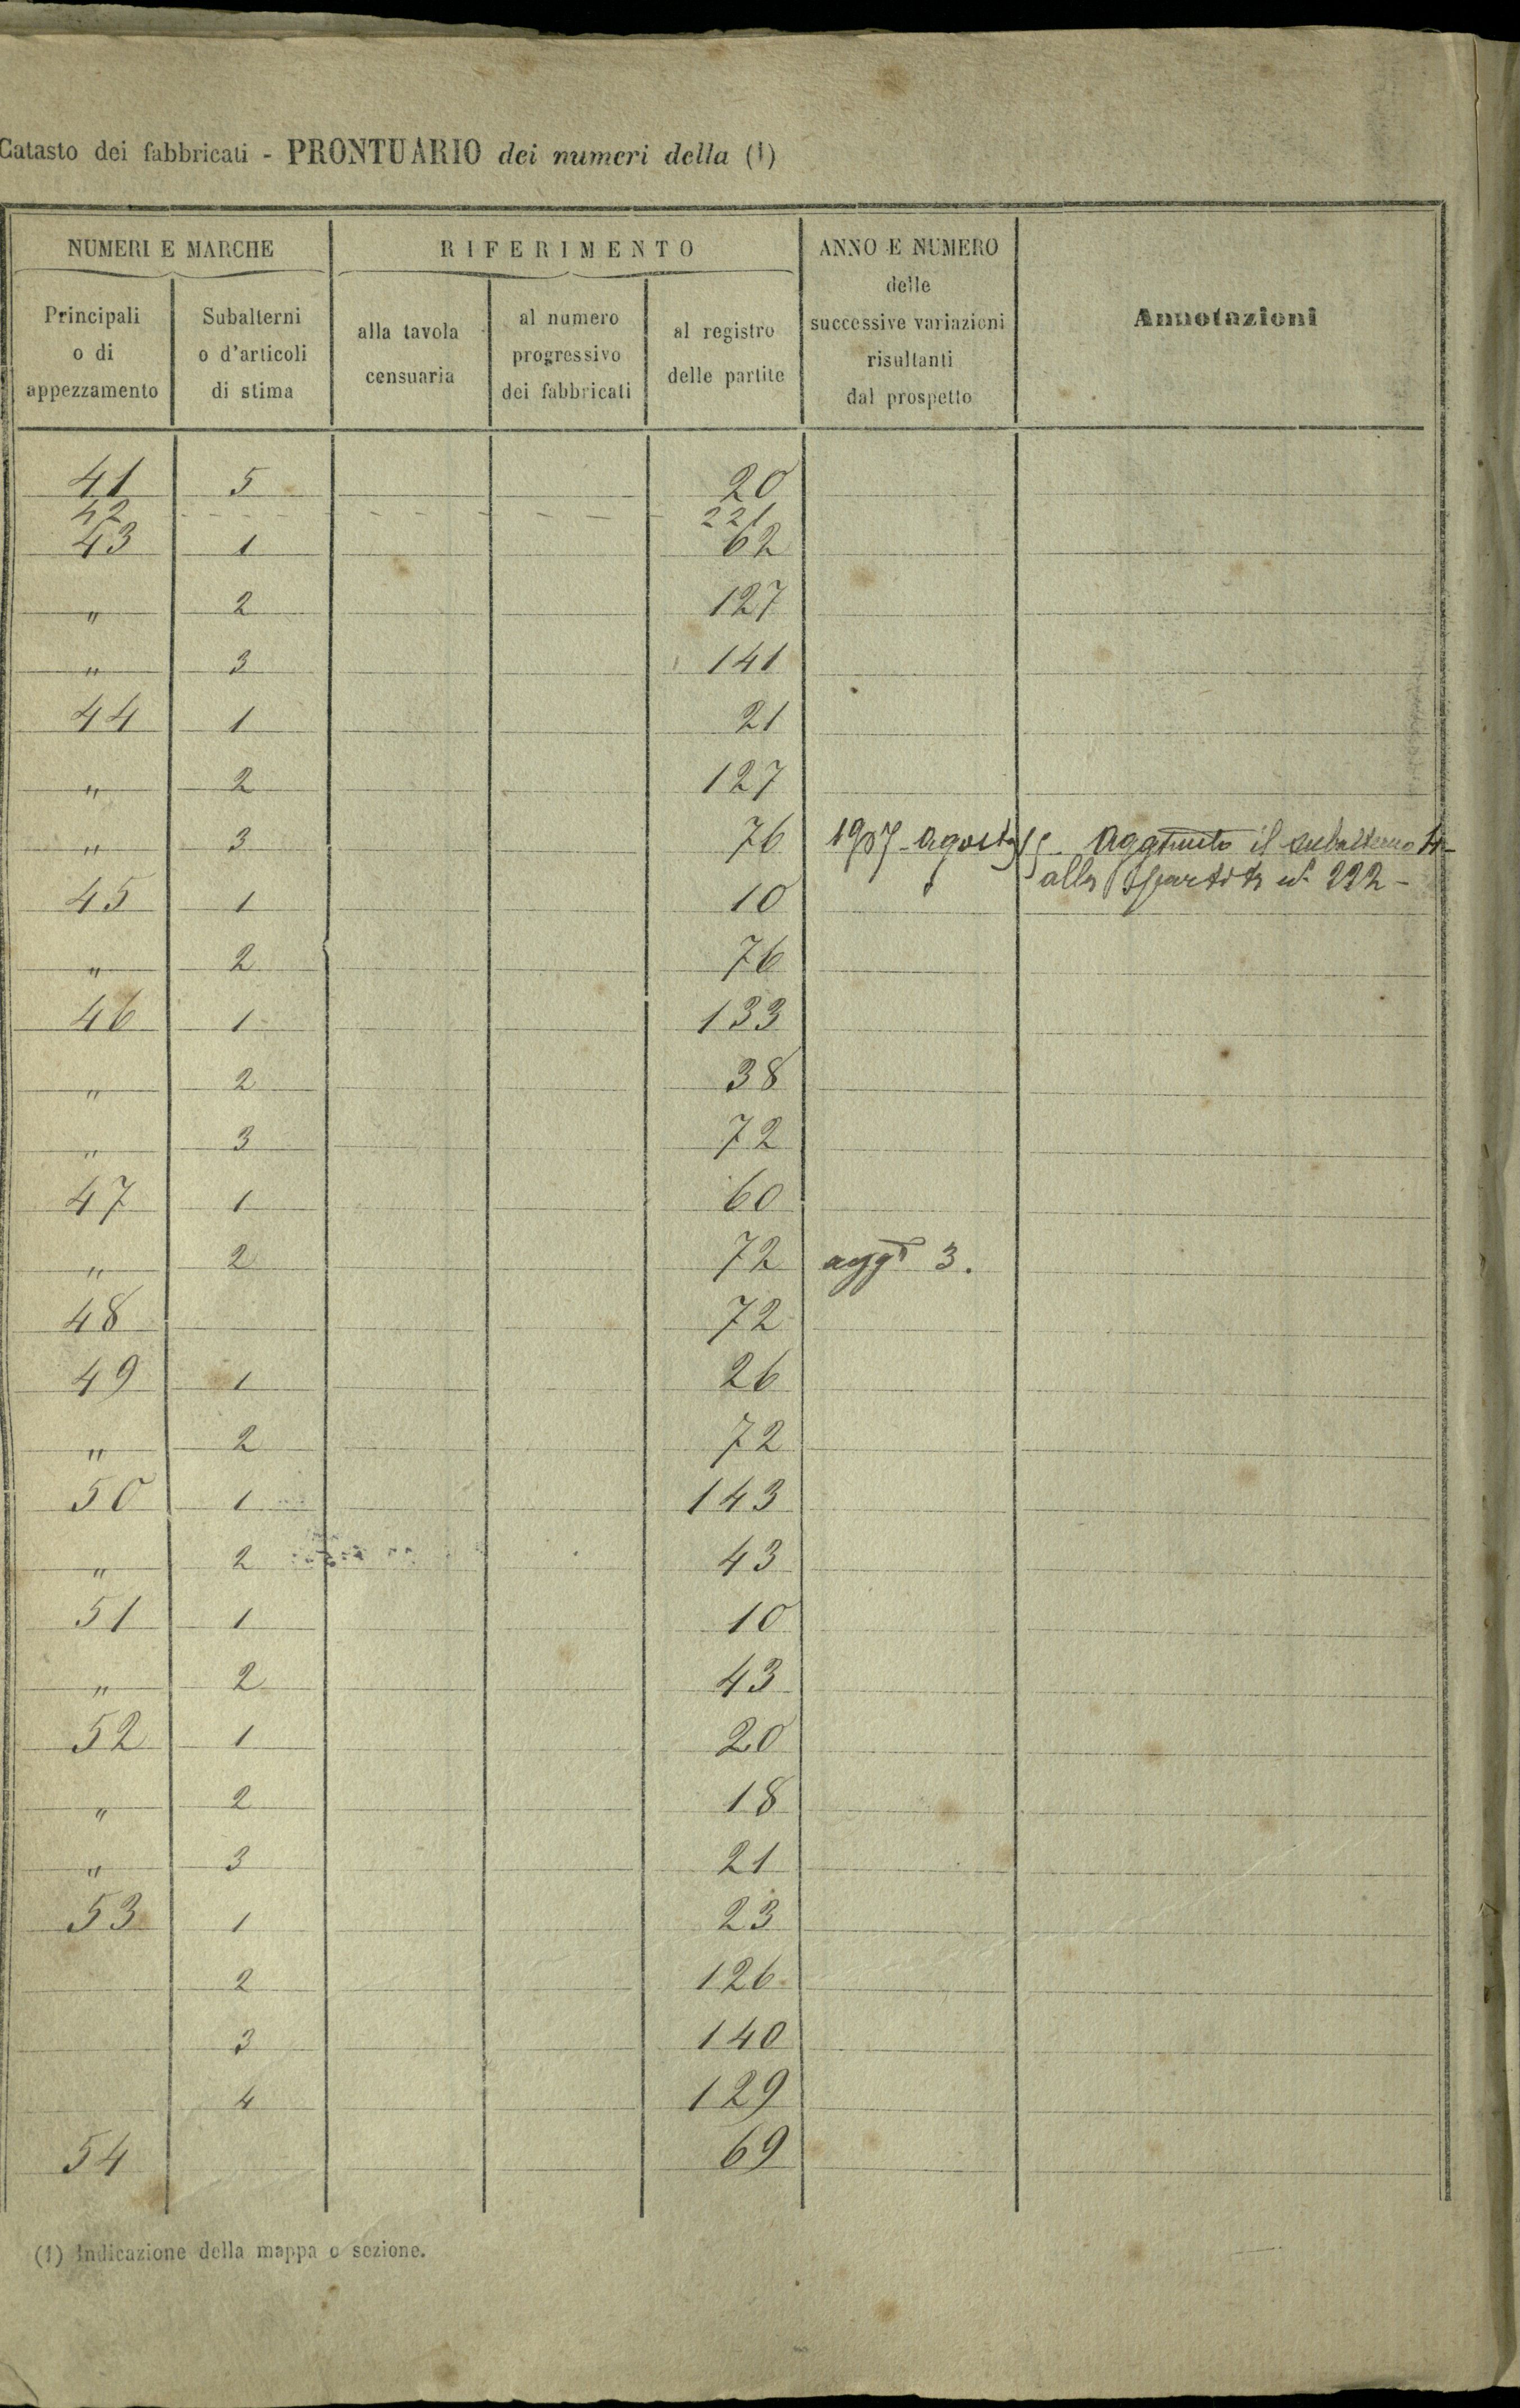 Catasto dei fabbricati - PRONTUARIO dei numeri della (1)
NUMERI E MARCHE RIFERIMENTO ANNO E NUMERO delle successive variazioni risultanti dal prospetto Annotazioni
Principali o di appezzamento Subalterni o d'articoli di stima alla tavola censuaria al numero progressivo dei fabbricati al registro delle partite
41 5 20
42 - - - - - - - - - 221
43 1 62
" 2 127
" 3 141
44 1 21
" 2 127
" 3 76 1907 - Agosto Aggiunto il subalterno 4 -
alla partita n. 222 -
45 1 10
" 2 76
46 1 133
" 2 38
" 3 72
47 1 60
" 2 72 aggto 3.
48 72
49 1 26
" 2 72
50 1 143
" 2 43
51 1 10
" 2 43
52 1 20
" 2 18
" 3 21
53 1 23
2 126
3 140
4 129
54 69
(1) Indicazione della mappa o sezione.